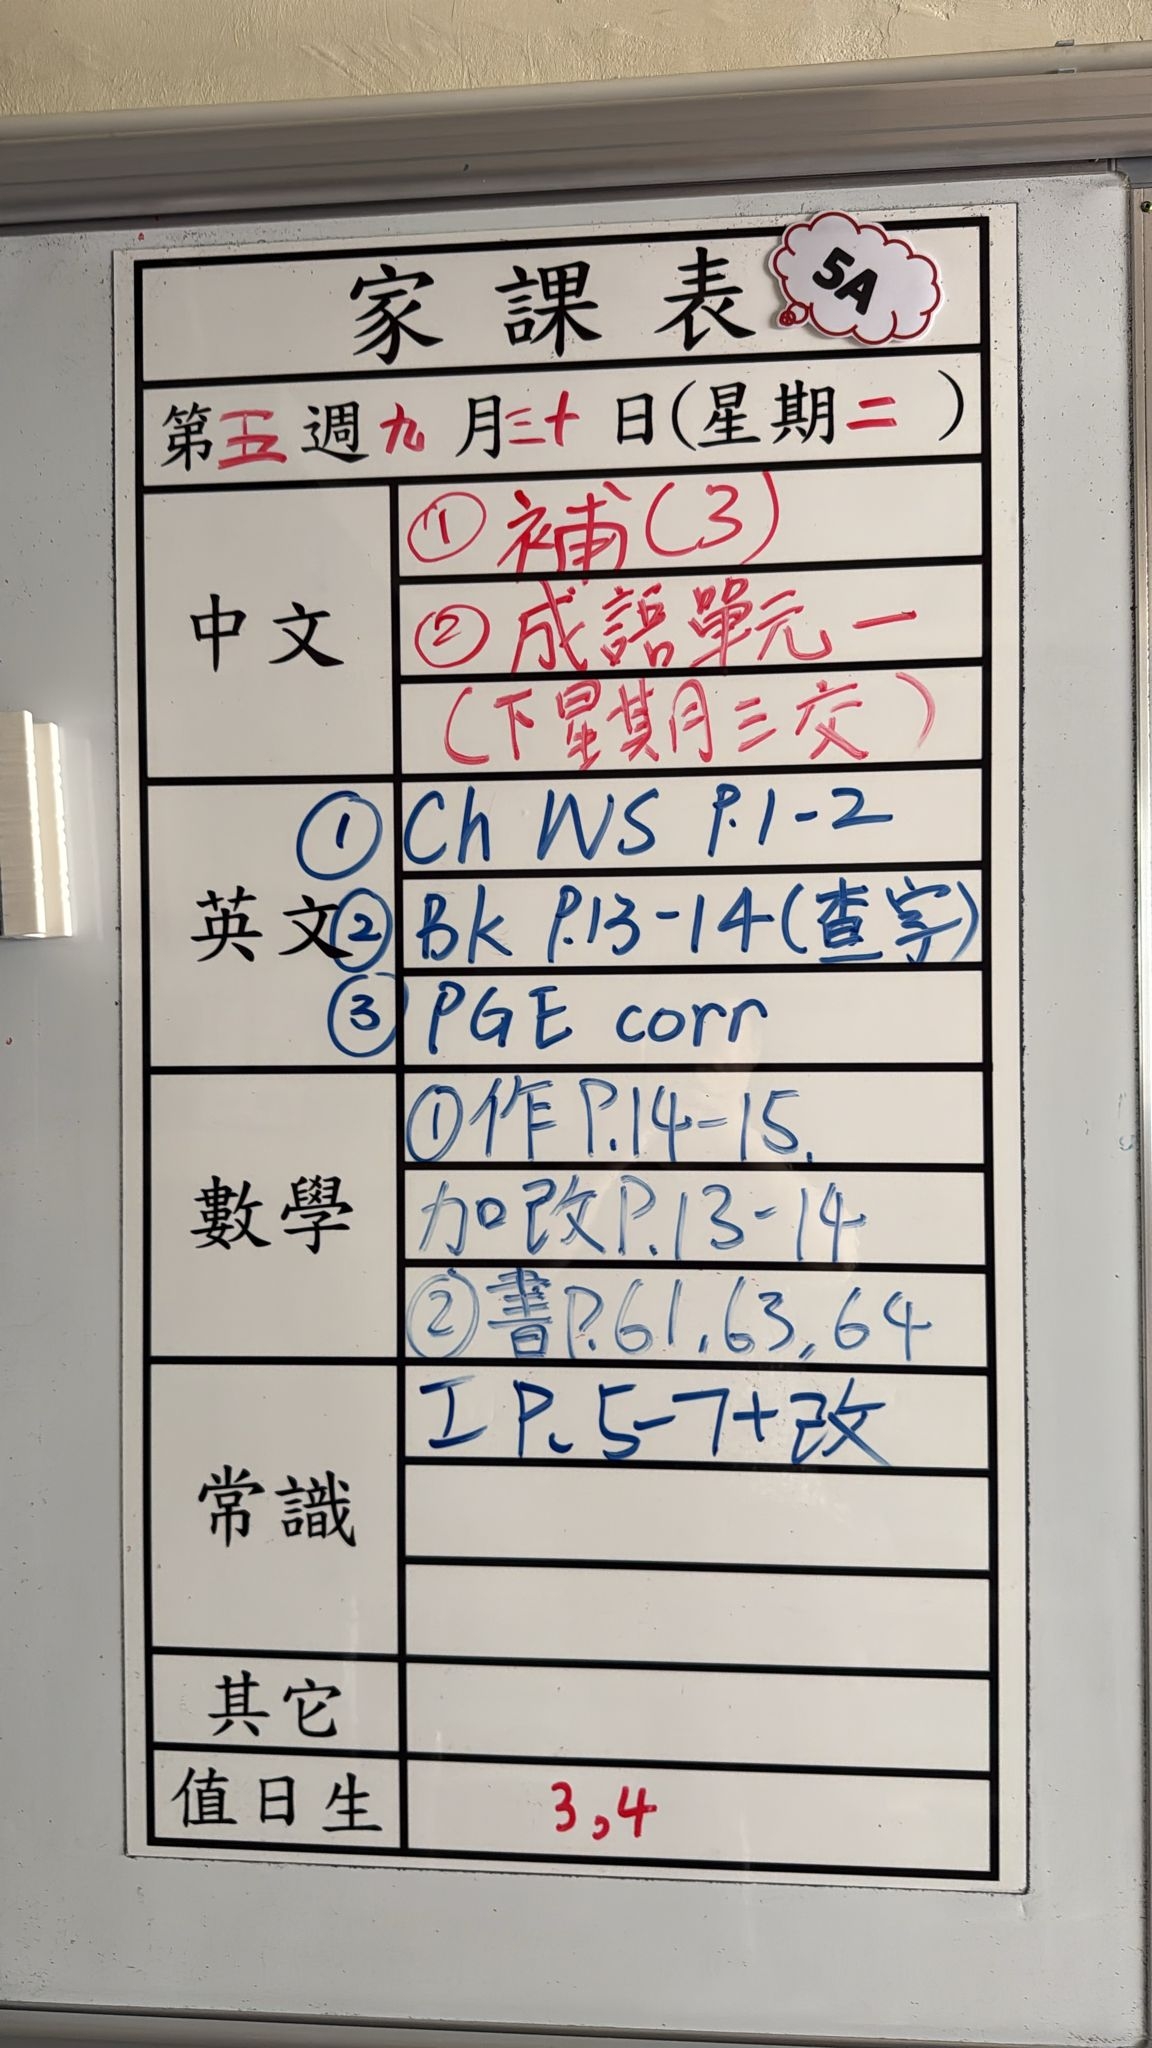 家課表
5A
第五週九月三十日(星期二)
中文
① 補(3)
② 成語單元一
(下星期三交)
英文
① Ch WS P.1-2
② Bk P.13-14(查字)
③ PGE corr
數學
①作P.14-15.
加改P.13-14
②書P.61,63,64
常識
工P.5-7+改
其它
值日生
3,4